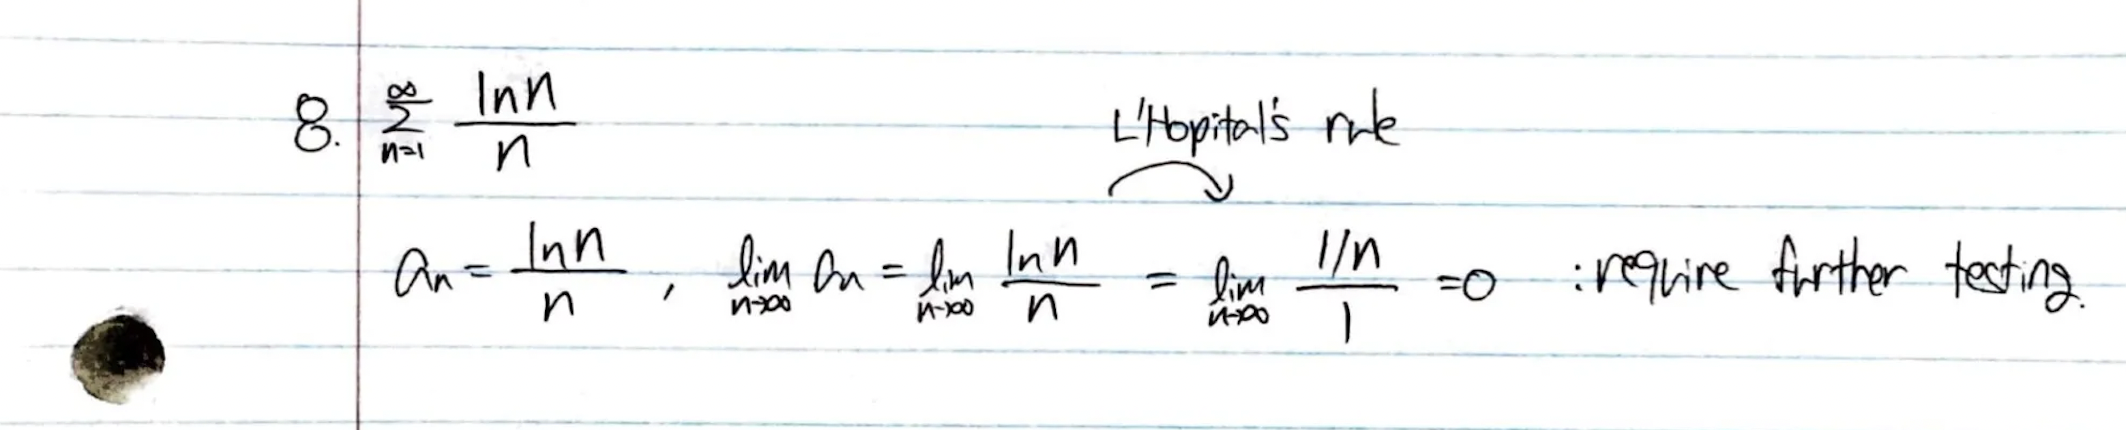 8. ∞ Σ n=1 ln n / n
L'Hopital's rule
an = ln n / n , lim n→∞ an = lim n→∞ ln n / n = lim n→∞ 1/n / 1 = 0 : require further testing.